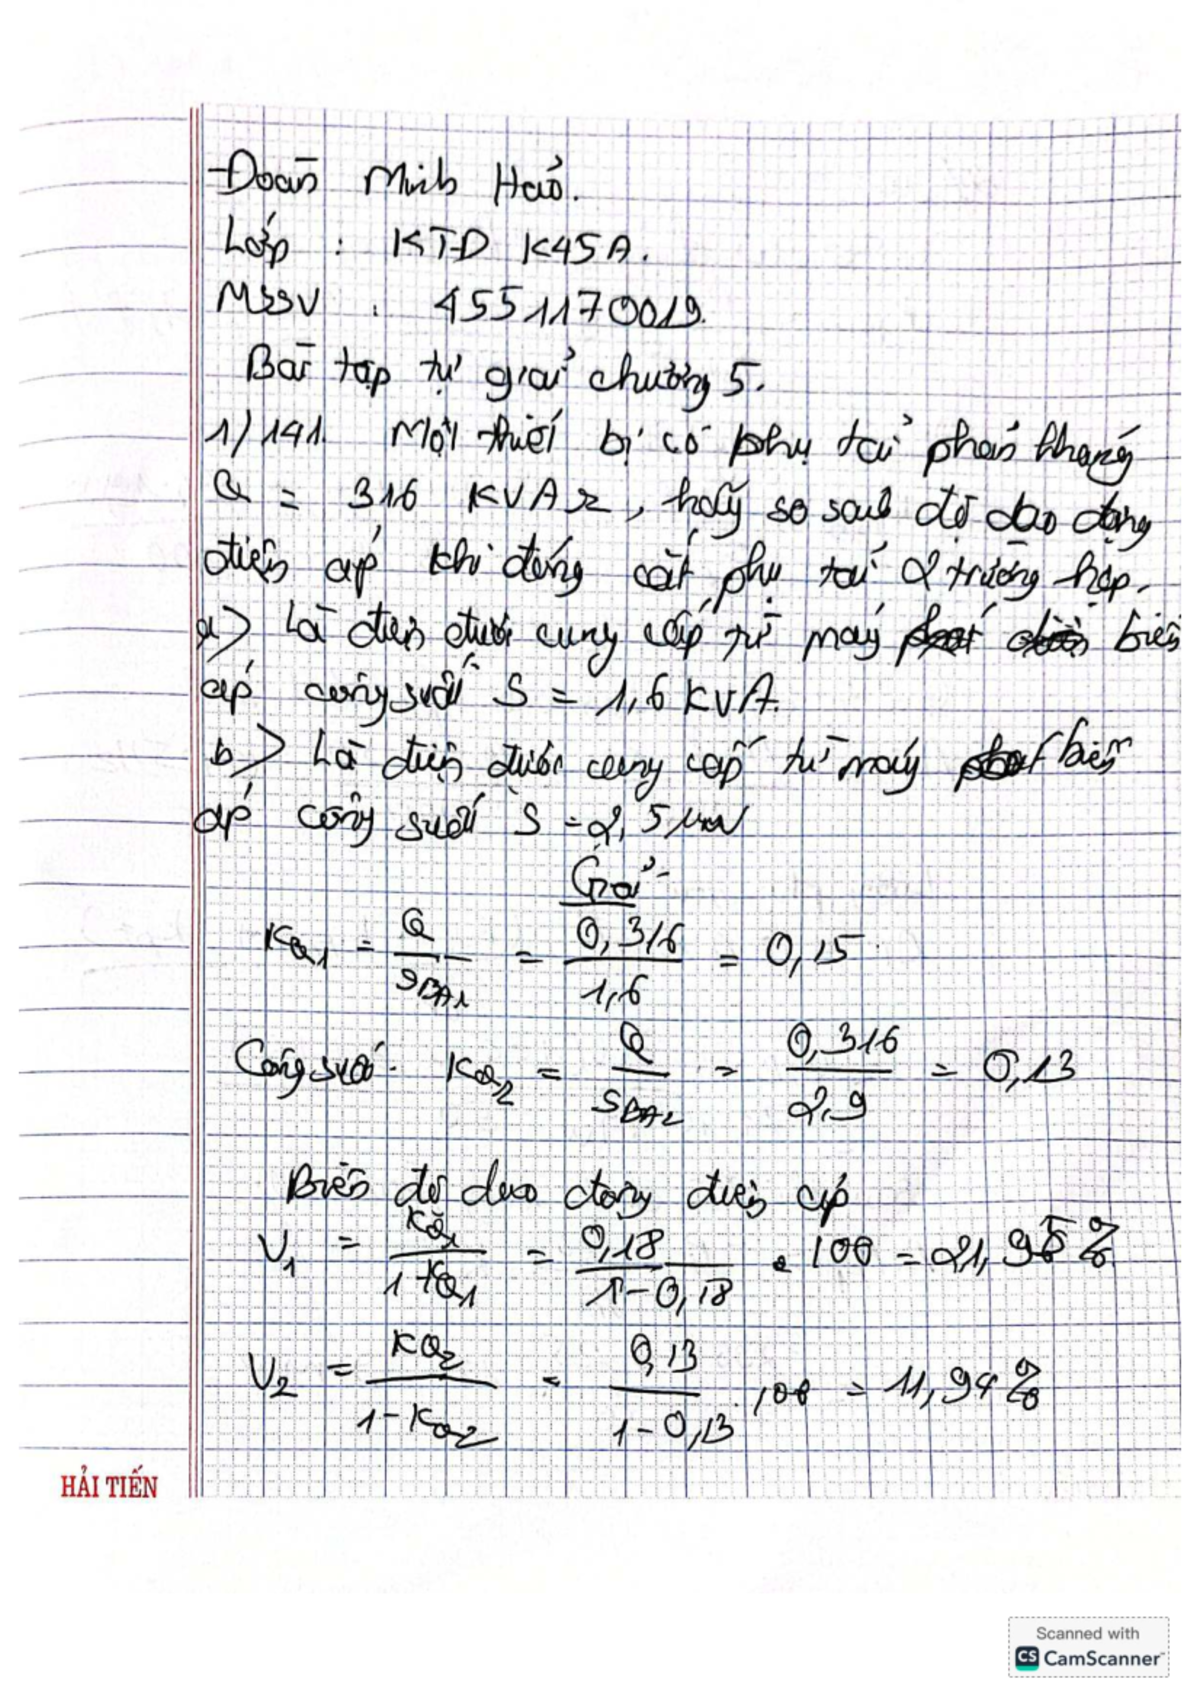 Đoàn Minh Hảo.
Lớp : KTĐ K45A.
MSSV : 4551170019.
Bài tập tự giải chương 5.
1/141. Một thiết bị có phụ tải phản kháng
Q = 316 KVAr, hãy so sánh độ dao động
điện áp khi đóng cắt phụ tải 2 trường hợp.
a> Là điện được cung cấp từ máy biến
áp công suất S = 1,6 KVA.
b> Là điện được cung cấp từ máy biến
áp công suất S = 2,5
Giải
KQ1 = Q / SBA1 = 0,316 / 1,6 = 0,15
Công suất KQ2 = Q / SBA2 = 0,316 / 2,9 = 0,13
Biên độ dao động điện áp
V1 = KQ1 / 1-KQ1 = 0,18 / 1-0,18 . 100 = 21,95%
V2 = KQ2 / 1-KQ2 = 0,13 / 1-0,13 .100 = 11,94%
HẢI TIẾN
Scanned with
CS CamScanner